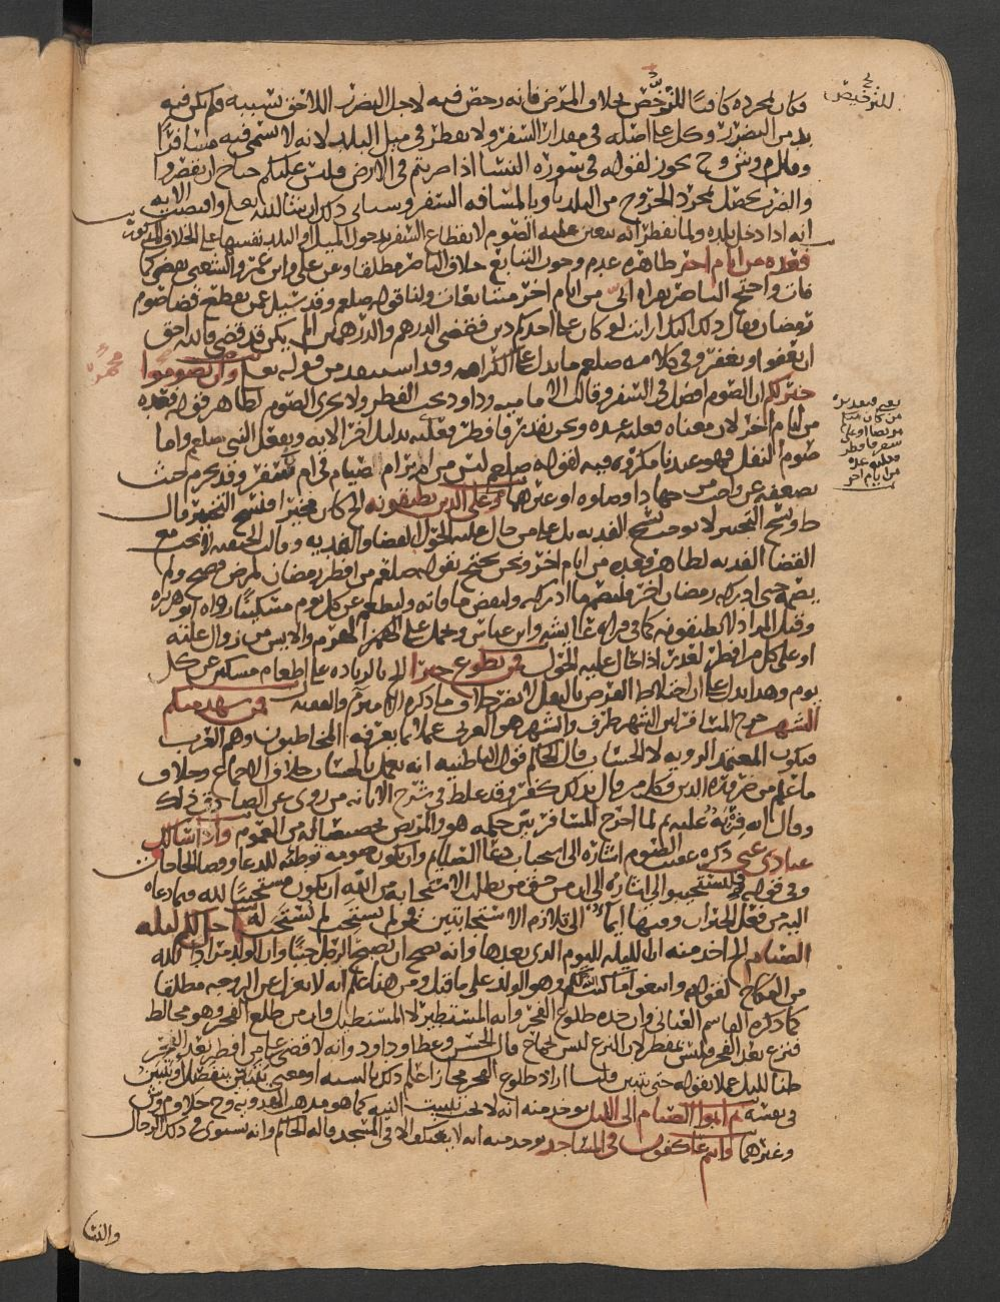 فكان مجرده كافيا للترخص بخلاف المرض فانه رخص فيه لاجل الضرر اللاحق بسببه فلم يكن فيه
للترخيص
بد من الضرر وكل على اصله في مقدار السفر ولا يفطر في ميل البلد لانه لا يسمى فيه مسافرا
و ح يجوز لقوله في سورة النسا اذا ضربتم في الارض فليس عليكم جناح ان تقصروا
والضرب يحصل بمجرد الخروج من البلد السفر وسياتي ذلك ان شا الله تعالى الايه
انه اذا دخل بلده ولما يفطر انه يتعين عليه الصوم لانقطاع السفر بدخول الميل او البلد نفسها على الخلاف
فعدة من ايام اخر ظاهره عدم وجوب التتابع خلاف الناصر مطلقا وعن علي وابن عمر والشعبي يقضي كما
فات واحتج الناصر بقراه ابي من ايام اخر متتابعات ولنا قوله صلعم وقد سيل عن تقطيع قضا صوم
رمضان فقال ذلك اليك ارايت لو كان على احدكم دين فقضى الدرهم والدرهمين الم يكن قد قضى فالله احق
ان يعفو او يغفر وفي كلامه صلعم ما يدل على الكراهه وقد من قوله تعالى وان تصوموا
خير لكم ان الصوم افضل في السفر وقالت الاماميه وداود يجب الفطر ولا يجزي الصوم لظاهر قوله فعدة
من ايام اخر لان معناه فعليه عده ونحن نقدر فافطر فعليه بدليل اخر الايه وبفعل النبي صلعم واما
يعني فتقديره
من كان منكم
مريضا او على
سفر فافطر
فعليه عدة
من ايام اخر
صوم النفل فهو عندنا مكروه فيه لقوله صلعم ليس من امبر امصيام في امسفر وقد يحرم حيث
يضعفه عن واجب من جهاد او صلوه او غيرهما وعلى الذين يطيقونه الخ كان مخيرا فنسخ التخيير قال
ط ونسخ التخيير لا يوجب نسخ الفديه بل على من حال عليه الحول القضا والفديه وقالت الحنفيه لا يجب مع
القضا الفديه لظاهر فعدة من ايام اخر ونحن نحتج بقوله صلعم من افطر رمضان لمرض فصح ولم
يقضه حتى ادركه رمضان اخر فليصم ما ادركه وليقض ما فاته وليطعم عن كل يوم مسكينا رواه ابو هريره
وقيل المراد لا يطيقونه كما في قراه عايشه وابن عباس وحمل على الهرم والايس من زوال علته
او على كل من افطر لعذر اذا حال عليه الحول فمن تطوع خيرا الخ بالزياده على اطعام مسكين عن كل
يوم وهذا يدل على ان اختلاط الفرض بالنفل لا يضر خلاف ما ذكره والفقيه فمن شهد منكم
الشهر خرج المسافر لان الشهر ظرف والشهر هو العربي عملا بما يعرفه المخاطبون وهم العرب
فيكون المعتمد الرويه لا الحساب قال الحاكم قول الباطنيه انه يعمل بالحساب خلاف الاجماع وخلاف
ما علم من ضرورة الدين وكل من قال بذلك كفر وقد غلط في شرح الابانه من روى عن الصادق ذلك
وقال انه فرية عليه ثم لما اخرج المسافر بين حكمه هو والمريض تخصيصا له من العموم واذا سالك
عبادي عني ذكره عقيب الصوم اشاره الى استحباب دعا الصايم وان يكون صومه توطئه للدعا وقضا الحاجات
وفي قوله فليستجيبوا لي اشاره الى ان من حق من يطلب الاستجابه من الله ان يكون مستجيبا لله فيما دعاه
اليه من فعل الواجبات وفيها ايما الى تلازم الاستجابتين فمن لم يستجب لم يستجب له احل لكم ليلة
الصيام الخ اخذ منه ان الليله لليوم الذي بعدها وانه يصح ان يصبح الرجل جنبا وان الولد مراد الله
من النكاح لقوله وابتغوا ما كتب الله لكم وهو الولد على ما قيل ومن هنا علم انه لا يعزل عن الزوجه مطلقا
كما ذكره القاسم العياني وان حده طلوع الفجر وانه المستطير لا المستطيل وان من طلع الفجر وهو مخالط
فنزع بعد الفجر فليس بمفطر لان النزع ليس بجماع قال الحسن وعطا وداود وانه لا قضا على من افطر بعد الفجر
ظنا لليل عملا بقوله حتى يتبين قلنا اراد طلوع الفجر مجازا علم ذلك بالسنه او معنى يتبين ينفصل ويتميز
في نفسه ثم اتموا الصيام الى الليل يوخذ منه انه لا يجب تبييت النيه كما هو مذهب الهدويه و ح خلاف م وش
وغيرهما وانتم عاكفون في المساجد يوخذ منه انه لا يعتكف الا في المسجد قاله الحاكم وانه يستوي في ذلك الرجال
والنسا